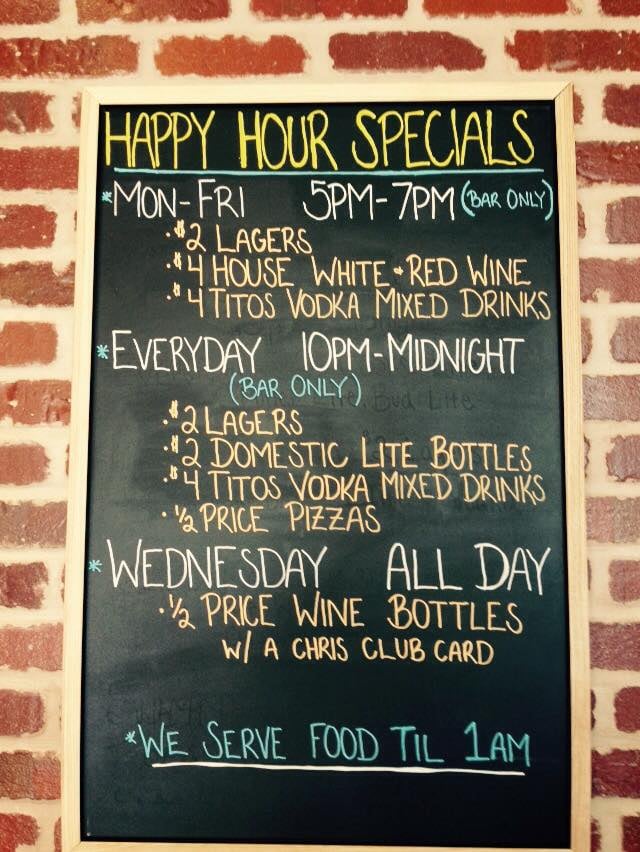 HAPPY HOUR SPECIALS
*MON-FRI 5PM-7PM (BAR ONLY)
·$2 LAGERS
·$4 HOUSE WHITE + RED WINE
·$4 TITOS VODKA MIXED DRINKS
*EVERYDAY 10PM-MIDNIGHT
(BAR ONLY)
·$2 LAGERS
·$2 DOMESTIC LITE BOTTLES
·$4 TITOS VODKA MIXED DRINKS
·½ PRICE PIZZAS
*WEDNESDAY ALL DAY
·½ PRICE WINE BOTTLES
W/ A CHRIS CLUB CARD
*WE SERVE FOOD TIL 1AM